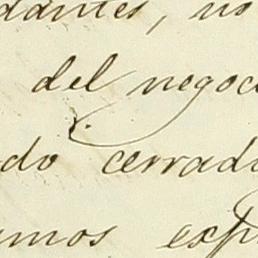 dantes, no
del negoc
do cerrad
mos exp